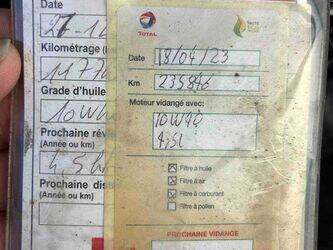 Date
27-12
Kilométrage (
Grade d'huile
10W4
Prochaine rév
(Année ou km)
Prochaine dis
(Année ou km)
TOTAL
Date 18/04/23
Km 235846
Moteur vidangé avec:
10W40
Filtre à huile
Filtre à air
Filtre à carburant
Filtre à pollen
PROCHAINE VIDANGE